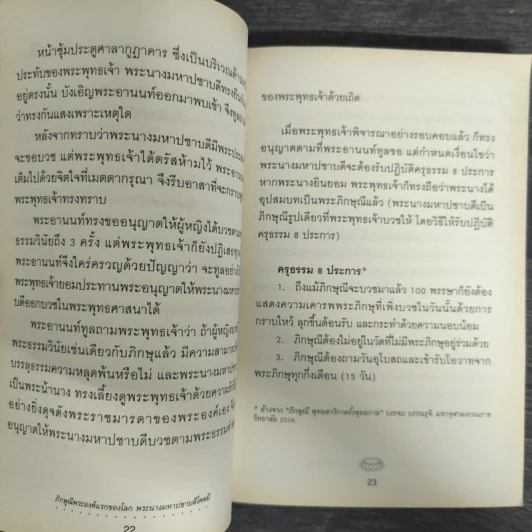 หน้าซุ้มประตูศาลากูฏาคาร ซึ่งเป็นบริเวณด้าน
ประทับของพระพุทธเจ้า พระนางมหาปชาบดีทรงยืน
อยู่ตรงนั้น บังเอิญพระอานนท์ออกมาพบเข้า จึงทูล
ว่าทรงกันแสงเพราะเหตุใด
หลังจากทราบว่าพระนางมหาปชาบดีมีพระประ
จะขอบวช แต่พระพุทธเจ้าได้ตรัสห้ามไว้ พระอานน
เต็มไปด้วยจิตใจที่เมตตากรุณา จึงรับอาสาที่จะกราบทูล
พระพุทธเจ้าทรงทราบ
พระอานนท์ทรงขออนุญาตให้ผู้หญิงได้บวชตาม
ธรรมวินัยถึง 3 ครั้ง แต่พระพุทธเจ้าก็ยังปฏิเสธทุก
พระอานนท์จึงใคร่ครวญด้วยปัญญาว่า จะทูลอย่างไร
พระพุทธเจ้ายอมประทานพระอนุญาตให้พระนางมหาปชา
บดีออกบวชในพระพุทธศาสนาได้
พระอานนท์ทูลถามพระพุทธเจ้าว่า ถ้าผู้หญิงบวช
พระธรรมวินัยเช่นเดียวกับภิกษุแล้ว มีความสามารถ
บรรลุธรรมความหลุดพ้นหรือไม่ และพระนางมหาปชา
เป็นพระน้านาง ทรงเลี้ยงดูพระพุทธเจ้าด้วยความ
อย่างยิ่งดุจดังพระราชมารดาของพระองค์เอง
อนุญาตให้พระนางมหาปชาบดีบวชตามพระธรรม
ภิกษุณีพระองค์แรกของโลก พระนางมหาปชาบดีโคตมี
22
ของพระพุทธเจ้าด้วยเถิด
เมื่อพระพุทธเจ้าพิจารณาอย่างรอบคอบแล้ว ก็ทรง
อนุญาตตามที่พระอานนท์ทูลขอ แต่กำหนดเงื่อนไขว่า
พระนางมหาปชาบดีจะต้องรับปฏิบัติครุธรรม 8 ประการ
หากพระนางยินยอม พระพุทธเจ้าก็ทรงถือว่าพระนางได้
อุปสมบทเป็นพระภิกษุณีแล้ว (พระนางมหาปชาบดีเป็น
ภิกษุณีรูปเดียวที่พระพุทธเจ้าบวชให้ โดยวิธีให้รับปฏิบัติ
ครุธรรม 8 ประการ)
ครุธรรม 8 ประการ*
1. ถึงแม้ภิกษุณีจะบวชมาแล้ว 100 พรรษาก็ยังต้อง
แสดงความเคารพพระภิกษุที่เพิ่งบวชในวันนั้นด้วยการ
กราบไหว้ ลุกขึ้นต้อนรับ และกระทำด้วยความนอบน้อม
2. ภิกษุณีต้องไม่อยู่ในวัดที่ไม่มีพระภิกษุอยู่ร่วมด้วย
3. ภิกษุณีต้องถามวันอุโบสถและเข้ารับโอวาทจาก
พระภิกษุทุกกึ่งเดือน (15 วัน)
* อ้างจาก "ภิกษุณี พุทธสาวิกาครั้งพุทธกาล" บรรจบ บรรณรุจิ, มหาจุฬาลงกรณราช
วิทยาลัย 2539.
23